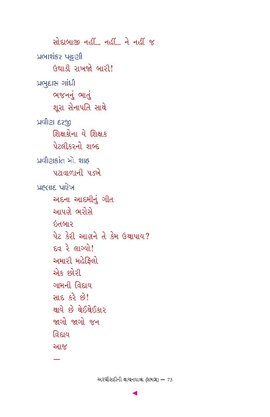 સોદાબાજી નહીં... નહીં... ને નહીં જ
પ્રભાશંકર પટ્ટણી
ઉઘાડી રાખજો બારી!
પ્રભુદાસ ગાંધી
ભજનનું ભાતું
શૂરા સેનાપતિ સાથે
પ્રવીણ દરજી
શિક્ષકોના યે શિક્ષક
પેટલીકરનો શબ્દ
પ્રવીણકાંત મો. શાહ
પટાવાળાની પડખે
પ્રહ્લાદ પારેખ
અદના આદમીનું ગીત
આપણે ભરોસે
ઇતબાર
પેટ કેરી આણને તે કેમ ઉથાપાય?
દવ રે લાગ્યો!
અમારી મહેફિલો
એક છોરી
ગામની વિદાય
સાદ કરે છે!
થાયે છે થેઈથેઈકાર
જાગો જાગો જન
વિદાય
આજ
—
અરધી સદીની વાચનયાત્રા (સમગ્ર) — 73